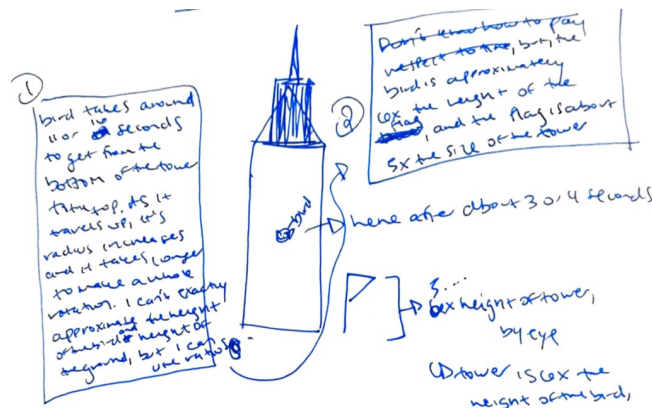 ①
bird takes around
11 or 10 seconds
to get from the
bottom of the tower
to the top. As it
travels up, it's
radius increases
and it takes longer
to make a whole
rotation. I can't exactly
approximate the height
of the bird and height of
the ground, but I can
use ratios
bird
②
Don't know how to pay
respect to time, but, the
bird is approximately
6x the height of the
flag, and the flag is about
5x the size of the tower
here after about 3 or 4 seconds
5...
6x height of tower,
by eye
① tower is 6x the
height of the bird,